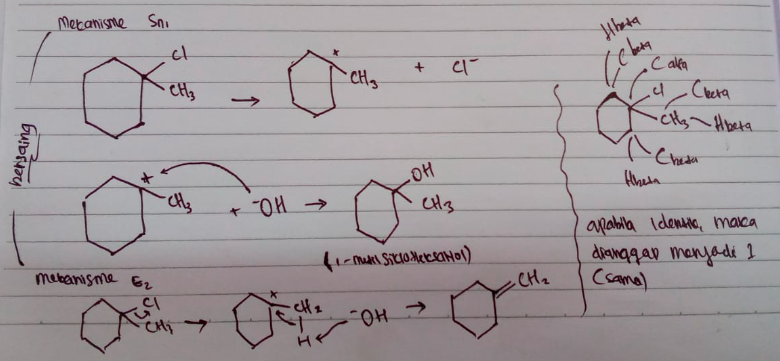 Mekanisme Sn1
Cl
CH3
+
CH3
+ Cl⁻
bersaing
+
CH3
+ ⁻OH
OH
CH3
(1-metil sikloheksanol)
mekanisme E2
Cl
CH3
+
CH2
H
⁻OH
CH2
Hbeta
Cbeta
C alfa
Cl
Cbeta
CH3
Hbeta
Cbeta
Hbeta
apabila identik, maka
dianggap menjadi 1
(sama)